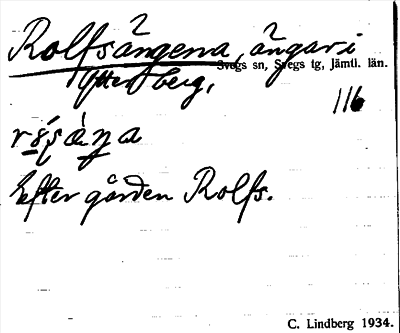 Rolfsängerna, ängar i
Ytterberg,
Svegs sn, Svegs tg, Jämtl. län.
116
efter gården Rolfs.
C. Lindberg 1934.